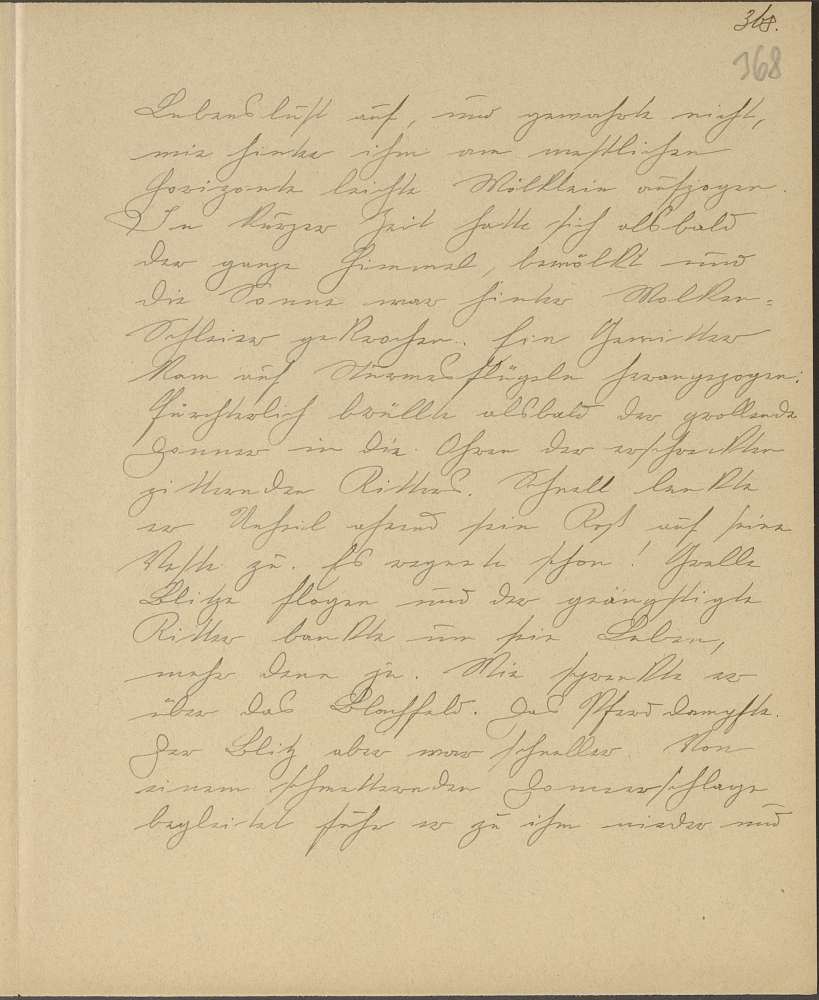 368.
368
Lebenslust auf, und gewahrte nicht,
wie hinter ihm am westlichen
Horizonte leichte Wölklein aufzogen.
In kurzer Zeit hatte sich alsbald
der ganze Himmel, bewölkt und
die Sonne war hinter Wolken-
Schleier gekrochen. Ein Gewitter
kam auf Sturmesflügeln herangezogen:
fürchterlich brüllte alsbald der grollende
Donner in die Ohren der erschreckten
zitternden Ritters. Schnell lenkte
er Unheil ahnend sein Roß auf seine
Veste zu. Es regnete schon! Grelle
Blitze flogen und der geängstigte
Ritter bankte um sein Leben,
mehr denn je. Wie sprengte er
über das Blachfeld. Das Pferd dampfte.
Der Blitz aber war schneller. Von
einem schmetternden Donnerschlage
begleitet fuhr er zu ihm nieder und